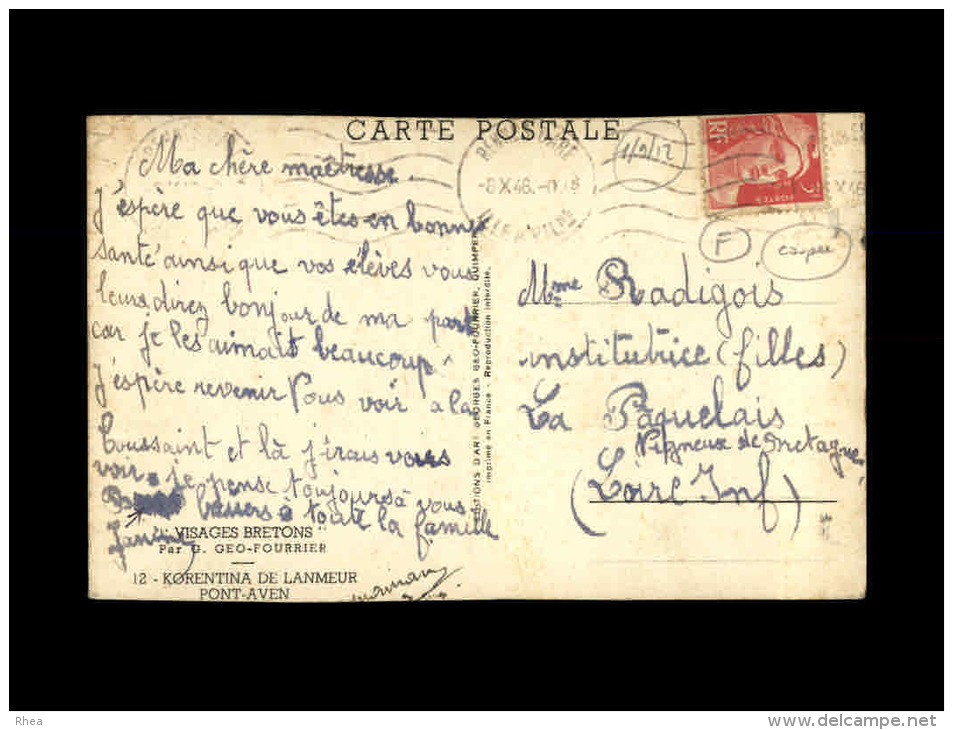 CARTE POSTALE
Ma chère maîtresse.
J'espère que vous êtes en bonnes
santé ainsi que vos élèves vous
leurs direz bonjour de ma part
car je les aimait beaucoup
J'espère revenir Vous voir a la
Toussaint et là j'irais vous
voir. je pense toujours à vous
bassers à toute la famille
Janine
" VISAGES BRETONS "
Par G. GEO-FOURRIER
12 - KORENTINA DE LANMEUR
PONT-AVEN
EDITIONS D'ART GEORGES GEO-FOURRIER, QUIMPER
Imprimé en France - Reproduction interdite.
-8 X 46.
1/9/12
RF
POSTES
F
coupée
Mme Radigois
institutrice (filles)
La Paquelais
Vigneux de Bretagne
(Loire Inf)
Rhea
www.delcampe.net